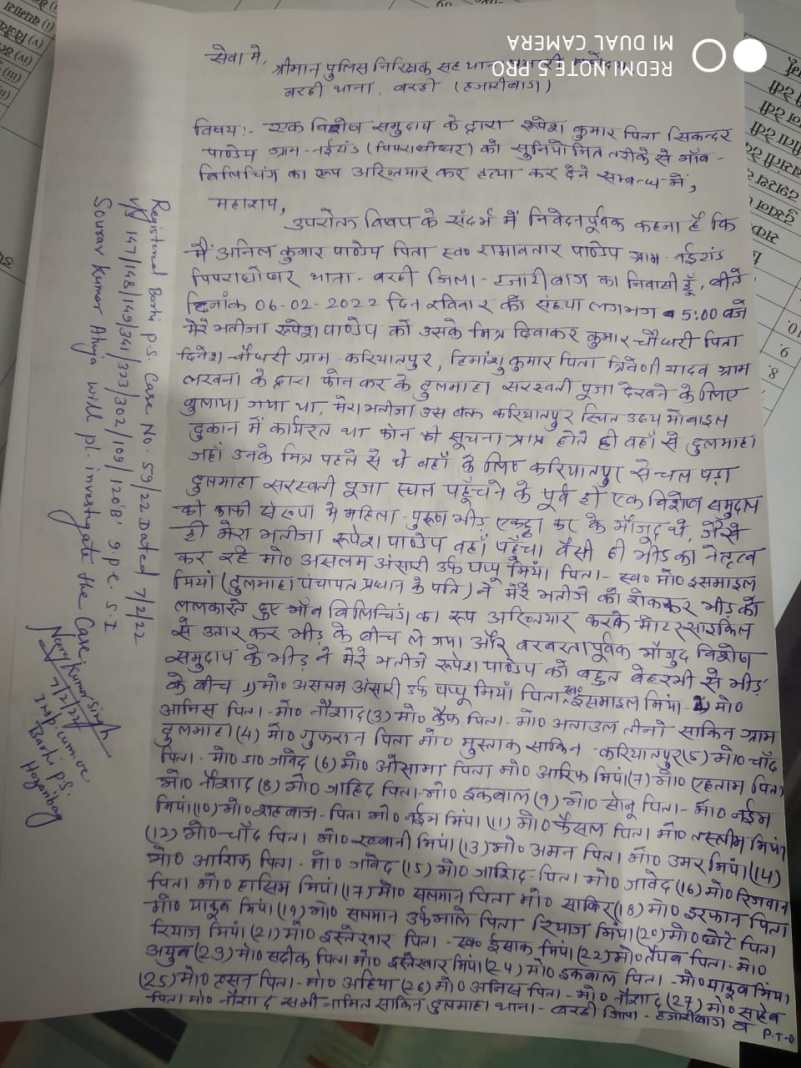 सेवा में,
श्रीमान पुलिस निरिक्षक सह थाना
बरही थाना, बरही (हजारीबाग)
विषय:- एक विशेष समुदाय के द्वारा रूपेश कुमार पिता सिकन्दर
पाण्डेय ग्राम-नईटांड (पिपराघोघर) को सुनियोजित तरीके से मॉब-
लिलिचिंग का रूप अख्तियार कर हत्या कर देने सम्बन्ध में,
महाशय,
उपरोक्त विषय के संदर्भ में निवेदनपूर्वक कहना है कि
मैं अनिल कुमार पाण्डेय पिता स्व० रामावतार पाण्डेय ग्राम नईटांड
पिपराघोघर थाना-बरही जिला-हजारीबाग का निवासी हूँ, बीते
दिनांक 06-02-2022 दिन रविवार को संध्या लगभग 5:00 बजे
मेरे भतीजा रूपेश पाण्डेय को उसके मित्र दिवाकर कुमार चौधरी पिता
दिनेश चौधरी ग्राम-करियातपुर, हिमांशु कुमार पिता त्रिवेणी यादव ग्राम
लखना के द्वारा फोन कर के दुलमाहा सरस्वती पूजा देखने के लिए
बुलाया गया था, मेरा भतीजा उस वक्त करियातपुर स्थित उदय मोबाइल
दुकान में कार्यरत था फोन की सूचना प्राप्त होते ही वहाँ से दुलमाहा
जहाँ उनके मित्र पहले से थे वहाँ के लिए करियातपुर से चल पड़ा
दुलमाहा सरस्वती पूजा स्थल पहुँचने के पूर्व ही एक विशेष समुदाय
की काफी संख्या में महिला-पुरूष भीड़ एकट्ठा कर के मौजूद थे, जैसे
ही मेरा भतीजा रूपेश पाण्डेय वहाँ पहुँचा वैसी ही भीड़ का नेतृत्व
कर रहे मो० असलम अंसारी उर्फ पप्पू मियां पिता-स्व० मो० इसमाइल
मियां (दुलमाहा पंचायत प्रधान के पति) ने मेरे भतीजे को रोककर भीड़ को
ललकारते हुए मॉब लिलिचिंग का रूप अख्तियार करके मोटरसाइकिल
से उतार कर भीड़ के बीच ले गया और बरबरतापूर्वक मौजुद विशेष
समुदाय के भीड़ ने मेरे भतीजे रूपेश पाण्डेय को बहुत बेहरमी से भीड़
के बीच 1) मो० असलम अंसारी उर्फ पप्पू मियां पिता स्व० इसमाइल मियां 2) मो०
अनिस पिता-मो० नौशाद (3) मो० कैफ पिता-मो० अलाउल तीनो साकिन ग्राम
दुलमाहा (4) मो० गुफरान पिता मो० मुस्ताक साकिन-करियातपुर (5) मो० चाँद
पिता-मो० जावेद (6) मो० ओसामा पिता मो० आरिफ मियां (7) मो० एहताम पिता
मो० नौशाद (8) मो० जाहिद पिता-मो० इकबाल (9) मो० सोनु पिता-मो० नईम
मियां (10) मो० शहबाज-पिता मो० नईम मियां (11) मो० फैसल पिता मो० तस्लीम मियां
(12) मो०-चाँद पिता मो० रब्बानी मियां (13) मो० अमन पिता मो० उमर मियां (14)
मो० आशिक पिता-मो० जावेद (15) मो० जाशिद-पिता मो० जावेद (16) मो० रिजवान
पिता मो० हासिम मियां (17) मो० सलमान पिता मो० साकिर (18) मो० इरफान पिता
मो० याकुब मियां (19) मो० सलमान उर्फ पिता रियाज मियां (20) मो० छोटे पिता
रियाज मियां (21) मो० इस्तेखार पिता-स्व० ईसाक मियां (22) मो० तैयब पिता-मो०
अयुब (23) मो० सदीक पिता मो० इस्तेखार मियां (24) मो० इकबाल पिता-मो० याकुब मियां
(25) मो० हसन पिता-मो० अहिया (26) मो० अनिस पिता-मो० नौशाद (27) मो० साहेब
पिता मो० नौशाद सभी साकिन दुलमाहा थाना-बरही जिला-हजारीबाग व
P.T.O
Registered Barhi P.S. Case No. 59/22 Dated 7/2/22
U/S 147/148/149/341/323/302/109/120B I.P.C. S.I
Sourav Kumar Ahuja will pl. investigate the Case.
7/2/22
Barhi P.S.
Hazaribag
REDMI NOTE 5 PRO
MI DUAL CAMERA